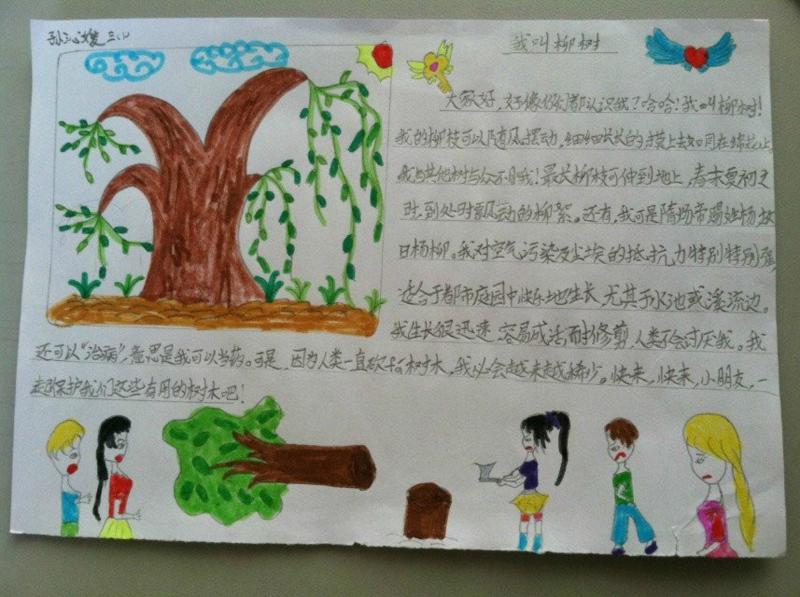 孙沁媛 三(1)
我叫柳树
大家好，好像你们都认识我？哈哈！我叫柳树！
我的柳枝可以随风摆动，细细长长的，摸上去如同在绵花上，
我与其他树与众不同我！最长柳枝可伸到地上，春末夏初之
时，到处时飘动的柳絮。还有，我可是隋炀帝赐姓杨故
曰杨柳。我对空气污染及尘埃的抵抗力特别特别强，
适合于都市庭园中快乐地生长，尤其于水池或溪流边。
我生长很迅速，容易成活而抄修剪，人类不会讨厌我。我
还可以“治病”，意思是我可以当药。可是，因为人类一直砍伐树木，我以会越来越稀少。快来，快来，小朋友，一
起保护我们这些有用的树木吧！